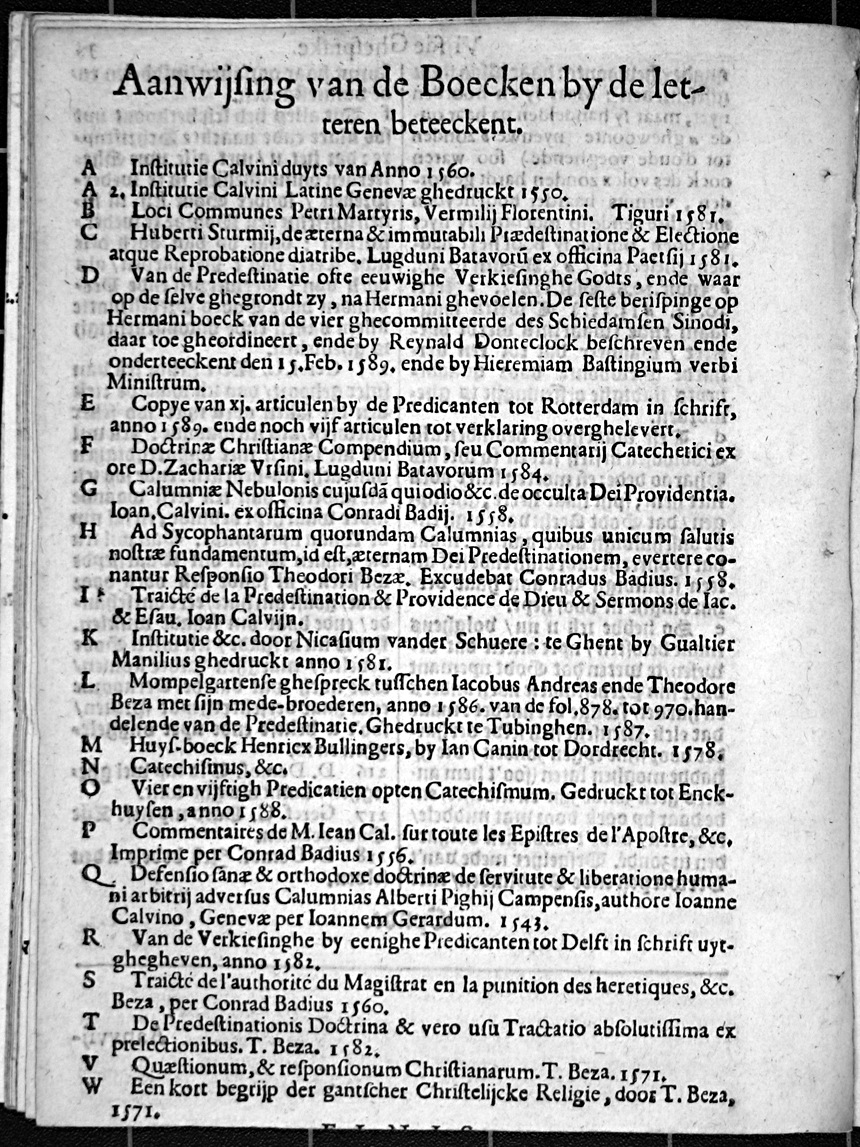 Aanwijſing van de Boecken by de let-
teren beteeckent.
A Inſtitutie Calvini duyts van Anno 1560.
A 2. Inſtitutie Calvini Latine Genevæ ghedruckt 1550.
B Loci Communes Petri Martyris, Vermilij Florentini. Tiguri 1581.
C Huberti Sturmij, de æterna & immutabili Prædeſtinatione & Electione
atque Reprobatione diatribe. Lugduni Batavorū ex officina Paetſij 1581.
D Van de Predeſtinatie ofte eeuwighe Verkieſinghe Godts, ende waar
op de ſelve ghegrondt zy, na Hermani ghevoelen. De ſeſte beriſpinge op
Hermani boeck van de vier ghecommitteerde des Schiedamſen Sinodi,
daar toe gheordineert, ende by Reynald Donteclock beſchreven ende
onderteeckent den 15. Feb. 1589. ende by Hieremiam Baſtingium verbi
Miniſtrum.
E Copye van xj. articulen by de Predicanten tot Rotterdam in ſchrift,
anno 1589. ende noch vijf articulen tot verklaring overghelevert.
F Doctrinæ Chriſtianæ Compendium, ſeu Commentarij Catechetici ex
ore D. Zachariæ Vrſini. Lugduni Batavorum 1584.
G Calumniæ Nebulonis cujuſdā qui odio &c. de occulta Dei Providentia.
Ioan. Calvini. ex officina Conradi Badij. 1558.
H Ad Sycophantarum quorundam Calumnias, quibus unicum ſalutis
noſtræ fundamentum, id eſt, æternam Dei Predeſtinationem, evertere co-
nantur Reſponſio Theodori Bezæ. Excudebat Conradus Badius. 1558.
I Traicté de la Predeſtination & Providence de Dieu & Sermons de Iac.
& Eſau. Ioan Calvijn.
K Inſtitutie &c. door Nicaſium vander Schuere : te Ghent by Gualtier
Manilius ghedruckt anno 1581.
L Mompelgartenſe gheſpreck tuſſchen Iacobus Andreas ende Theodore
Beza met ſijn mede-broederen, anno 1586. van de fol, 878. tot 970. han-
delende van de Predeſtinatie. Ghedruckt te Tubinghen. 1587.
M Huyſ-boeck Henricx Bullingers, by Ian Canin tot Dordrecht. 1578.
N Catechiſmus, &c.
O Vier en vijftigh Predicatien opten Catechiſmum. Gedruckt tot Enck-
huyſen, anno 1588.
P Commentaires de M. Iean Cal. ſur toute les Epiſtres de l'Apoſtre, &c.
Imprime per Conrad Badius 1556.
Q Defenſio ſanæ & orthodoxe doctrinæ de ſervitute & liberatione huma-
ni arbitrij adverſus Calumnias Alberti Pighij Campenſis, authore Ioanne
Calvino, Genevæ per Ioannem Gerardum. 1543.
R Van de Verkieſinghe by eenighe Predicanten tot Delft in ſchrift uyt-
ghegheven, anno 1582.
S Traicté de l'authorité du Magiſtrat en la punition des heretiques, &c.
Beza, per Conrad Badius 1560.
T De Predeſtinationis Doctrina & vero uſu Tractatio abſolutiſſima ex
prelectionibus. T. Beza. 1582.
V Quæſtionum, & reſponſionum Chriſtianarum. T. Beza. 1571.
W Een kort begrijp der gantſcher Chriſtelijcke Religie, door T. Beza,
1571.